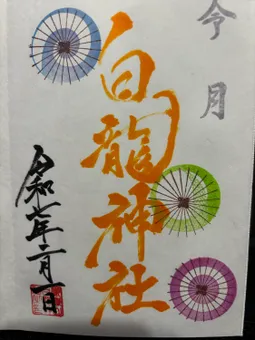 今月
白龍神社
令和七年六月一日